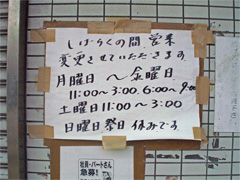 しばらくの間、営業
変更させていただきます。
月曜日 〜 金曜日
11:00〜3:00, 6:00〜9:00
土曜日 11:00〜3:00
日曜日祭日 休みです。
社員・パートさん
急募!